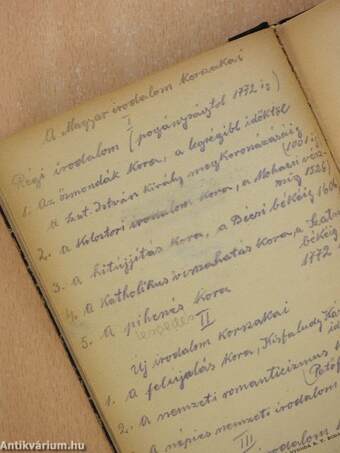 A Magyar irodalom korszakai
I
Régi irodalom (pogányságtól 1772 ig)
1. Az ősmondák kora, a legrégibb időktől
Szt. István király megkoronázásáig
(1001 ig)
2. a Kolostori irodalom kora, a Mohácsi vész
ig 1526)
3. a hitújjítás kora, a Bécsi békéig 1606
4. a Katholikus visszahatás kora, a
békéig
5. A pihenés kora
1772
II
Új irodalom korszakai
1. a felújulás kora, Kisfaludy
2. A nemzeti romanticizmus
(Petőf
A népies nemzeti irodalom
III
irodalom
Antikvárium.hu